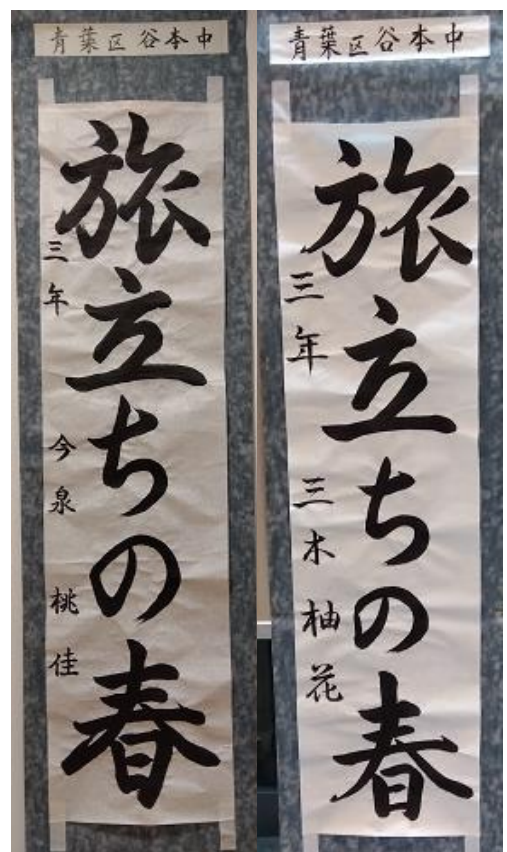 青葉区谷本中
旅立ちの春
三年 今泉 桃佳
青葉区谷本中
旅立ちの春
三年 三木柚花